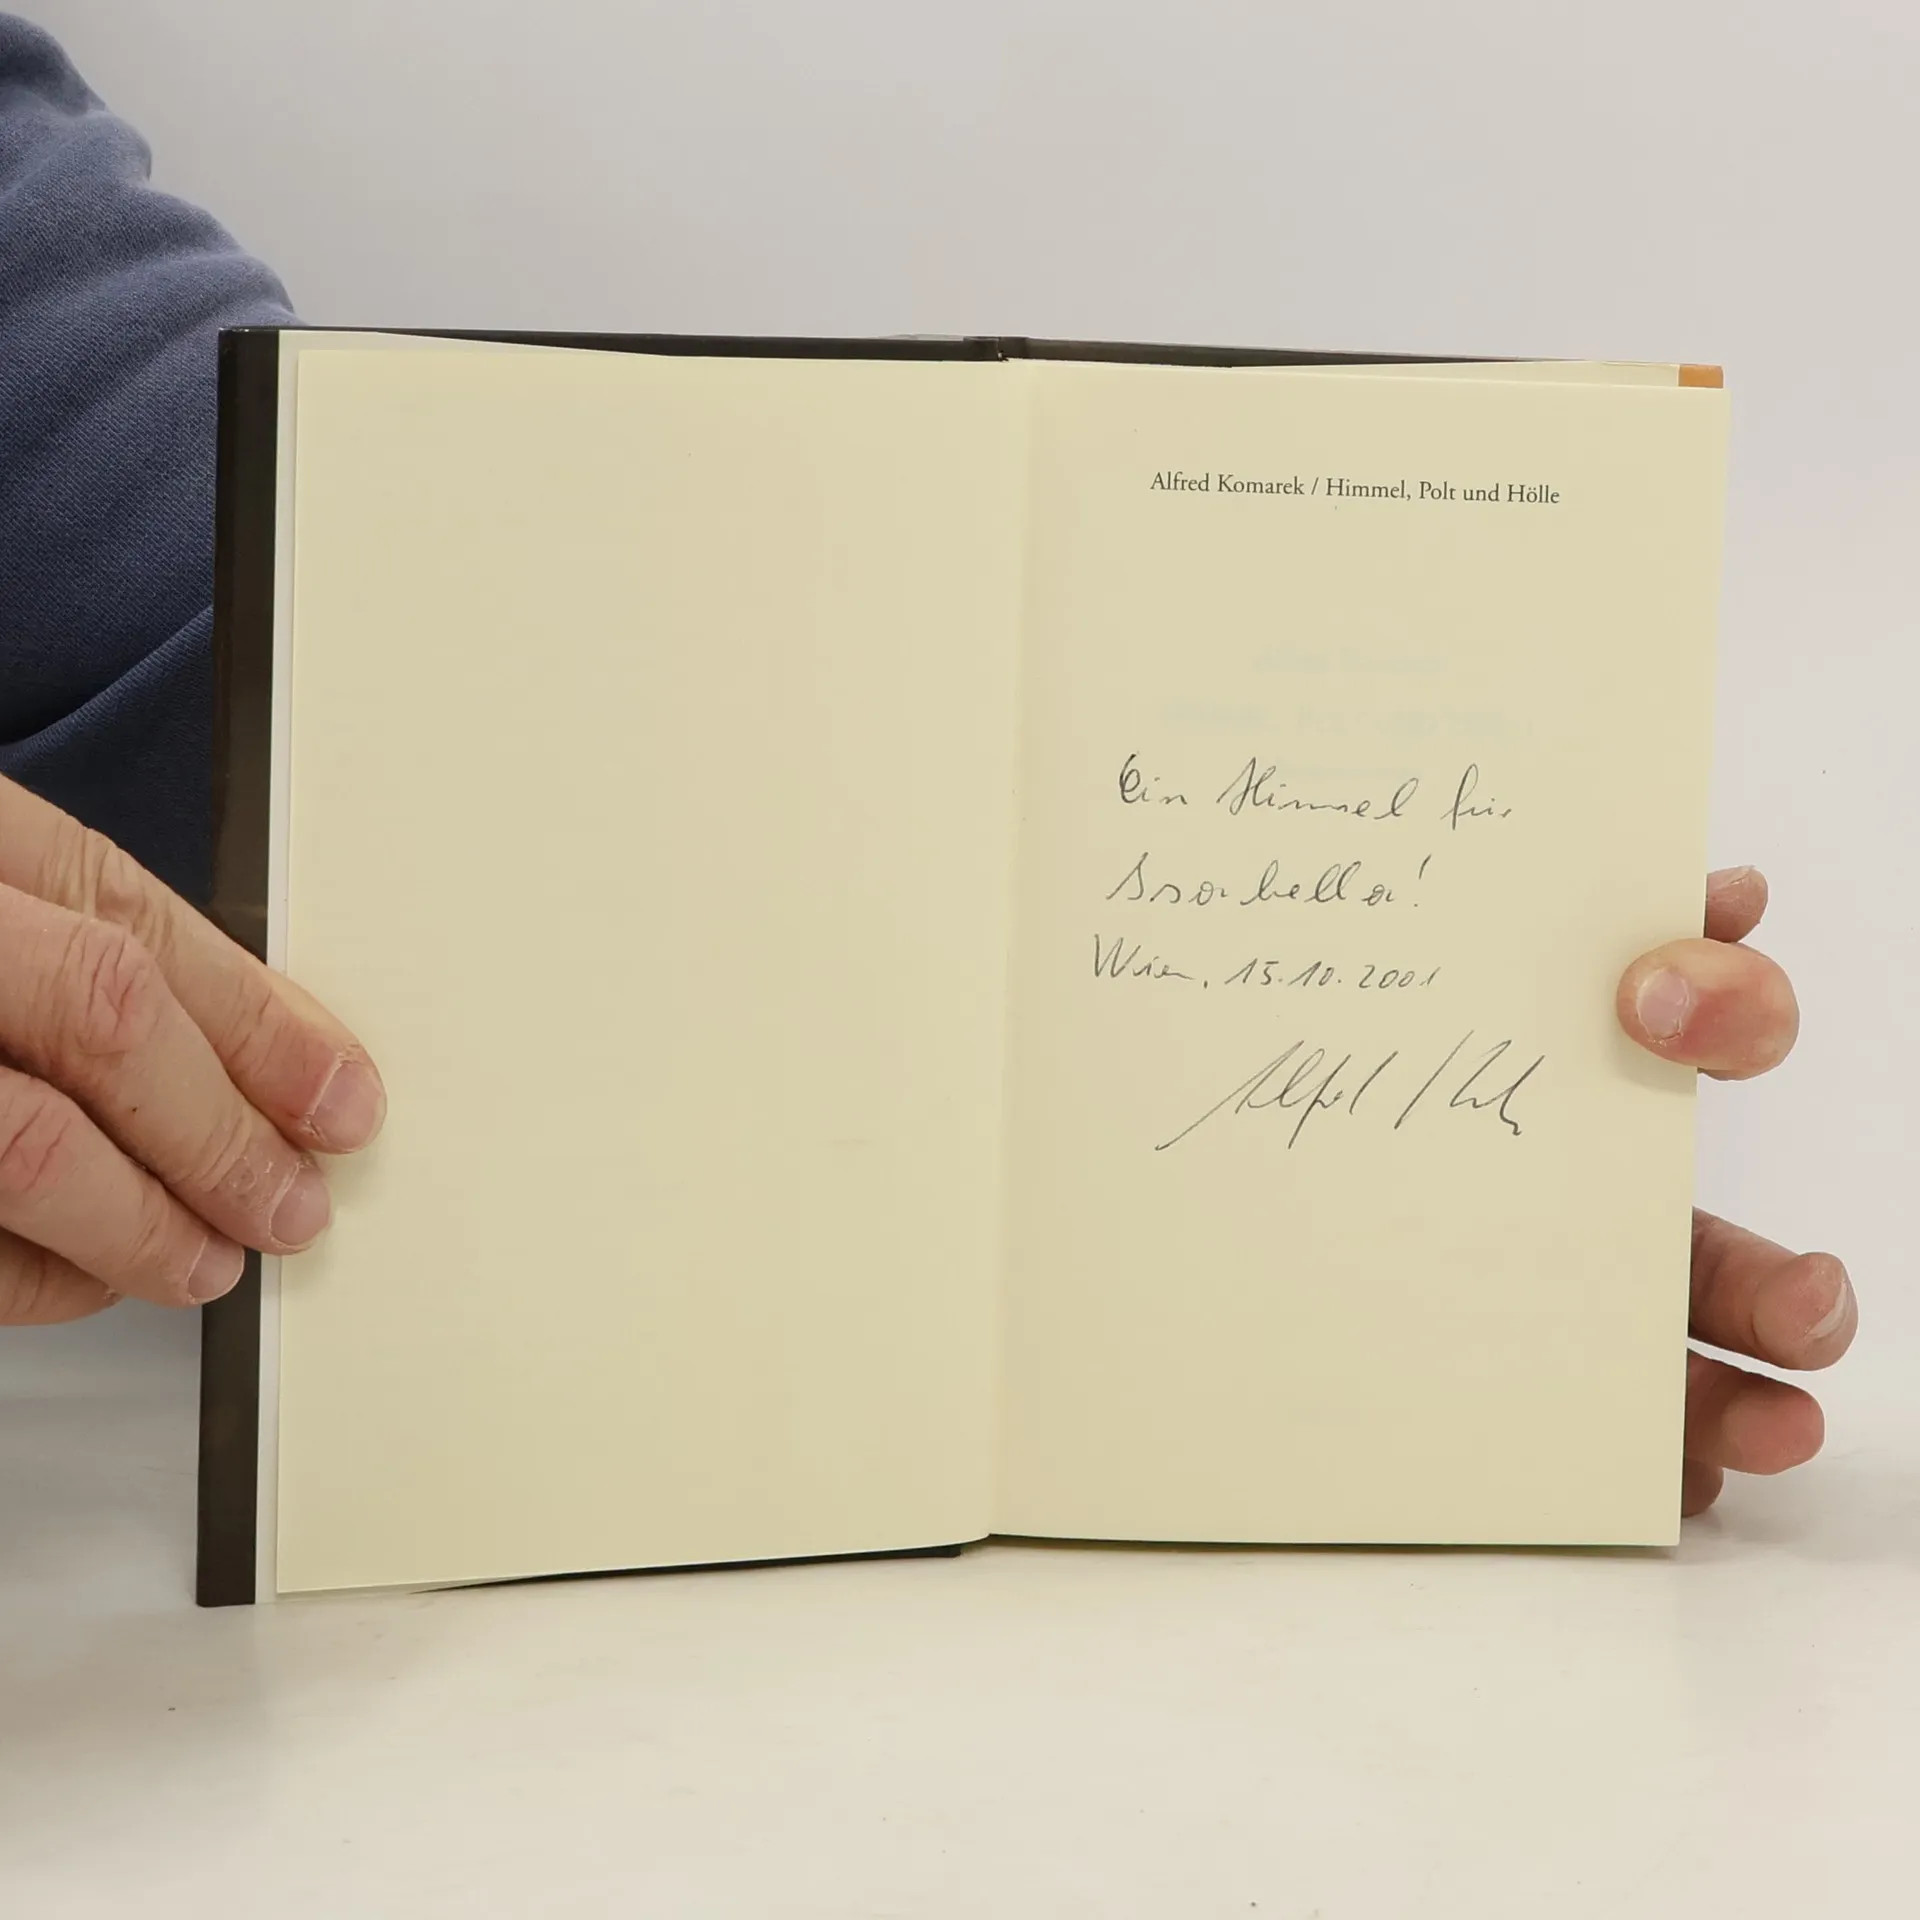 Alfred Komarek / Himmel, Polt und Hölle
Ein Himmel für
Isabella!
Wien, 15.10.2001
Alfred K